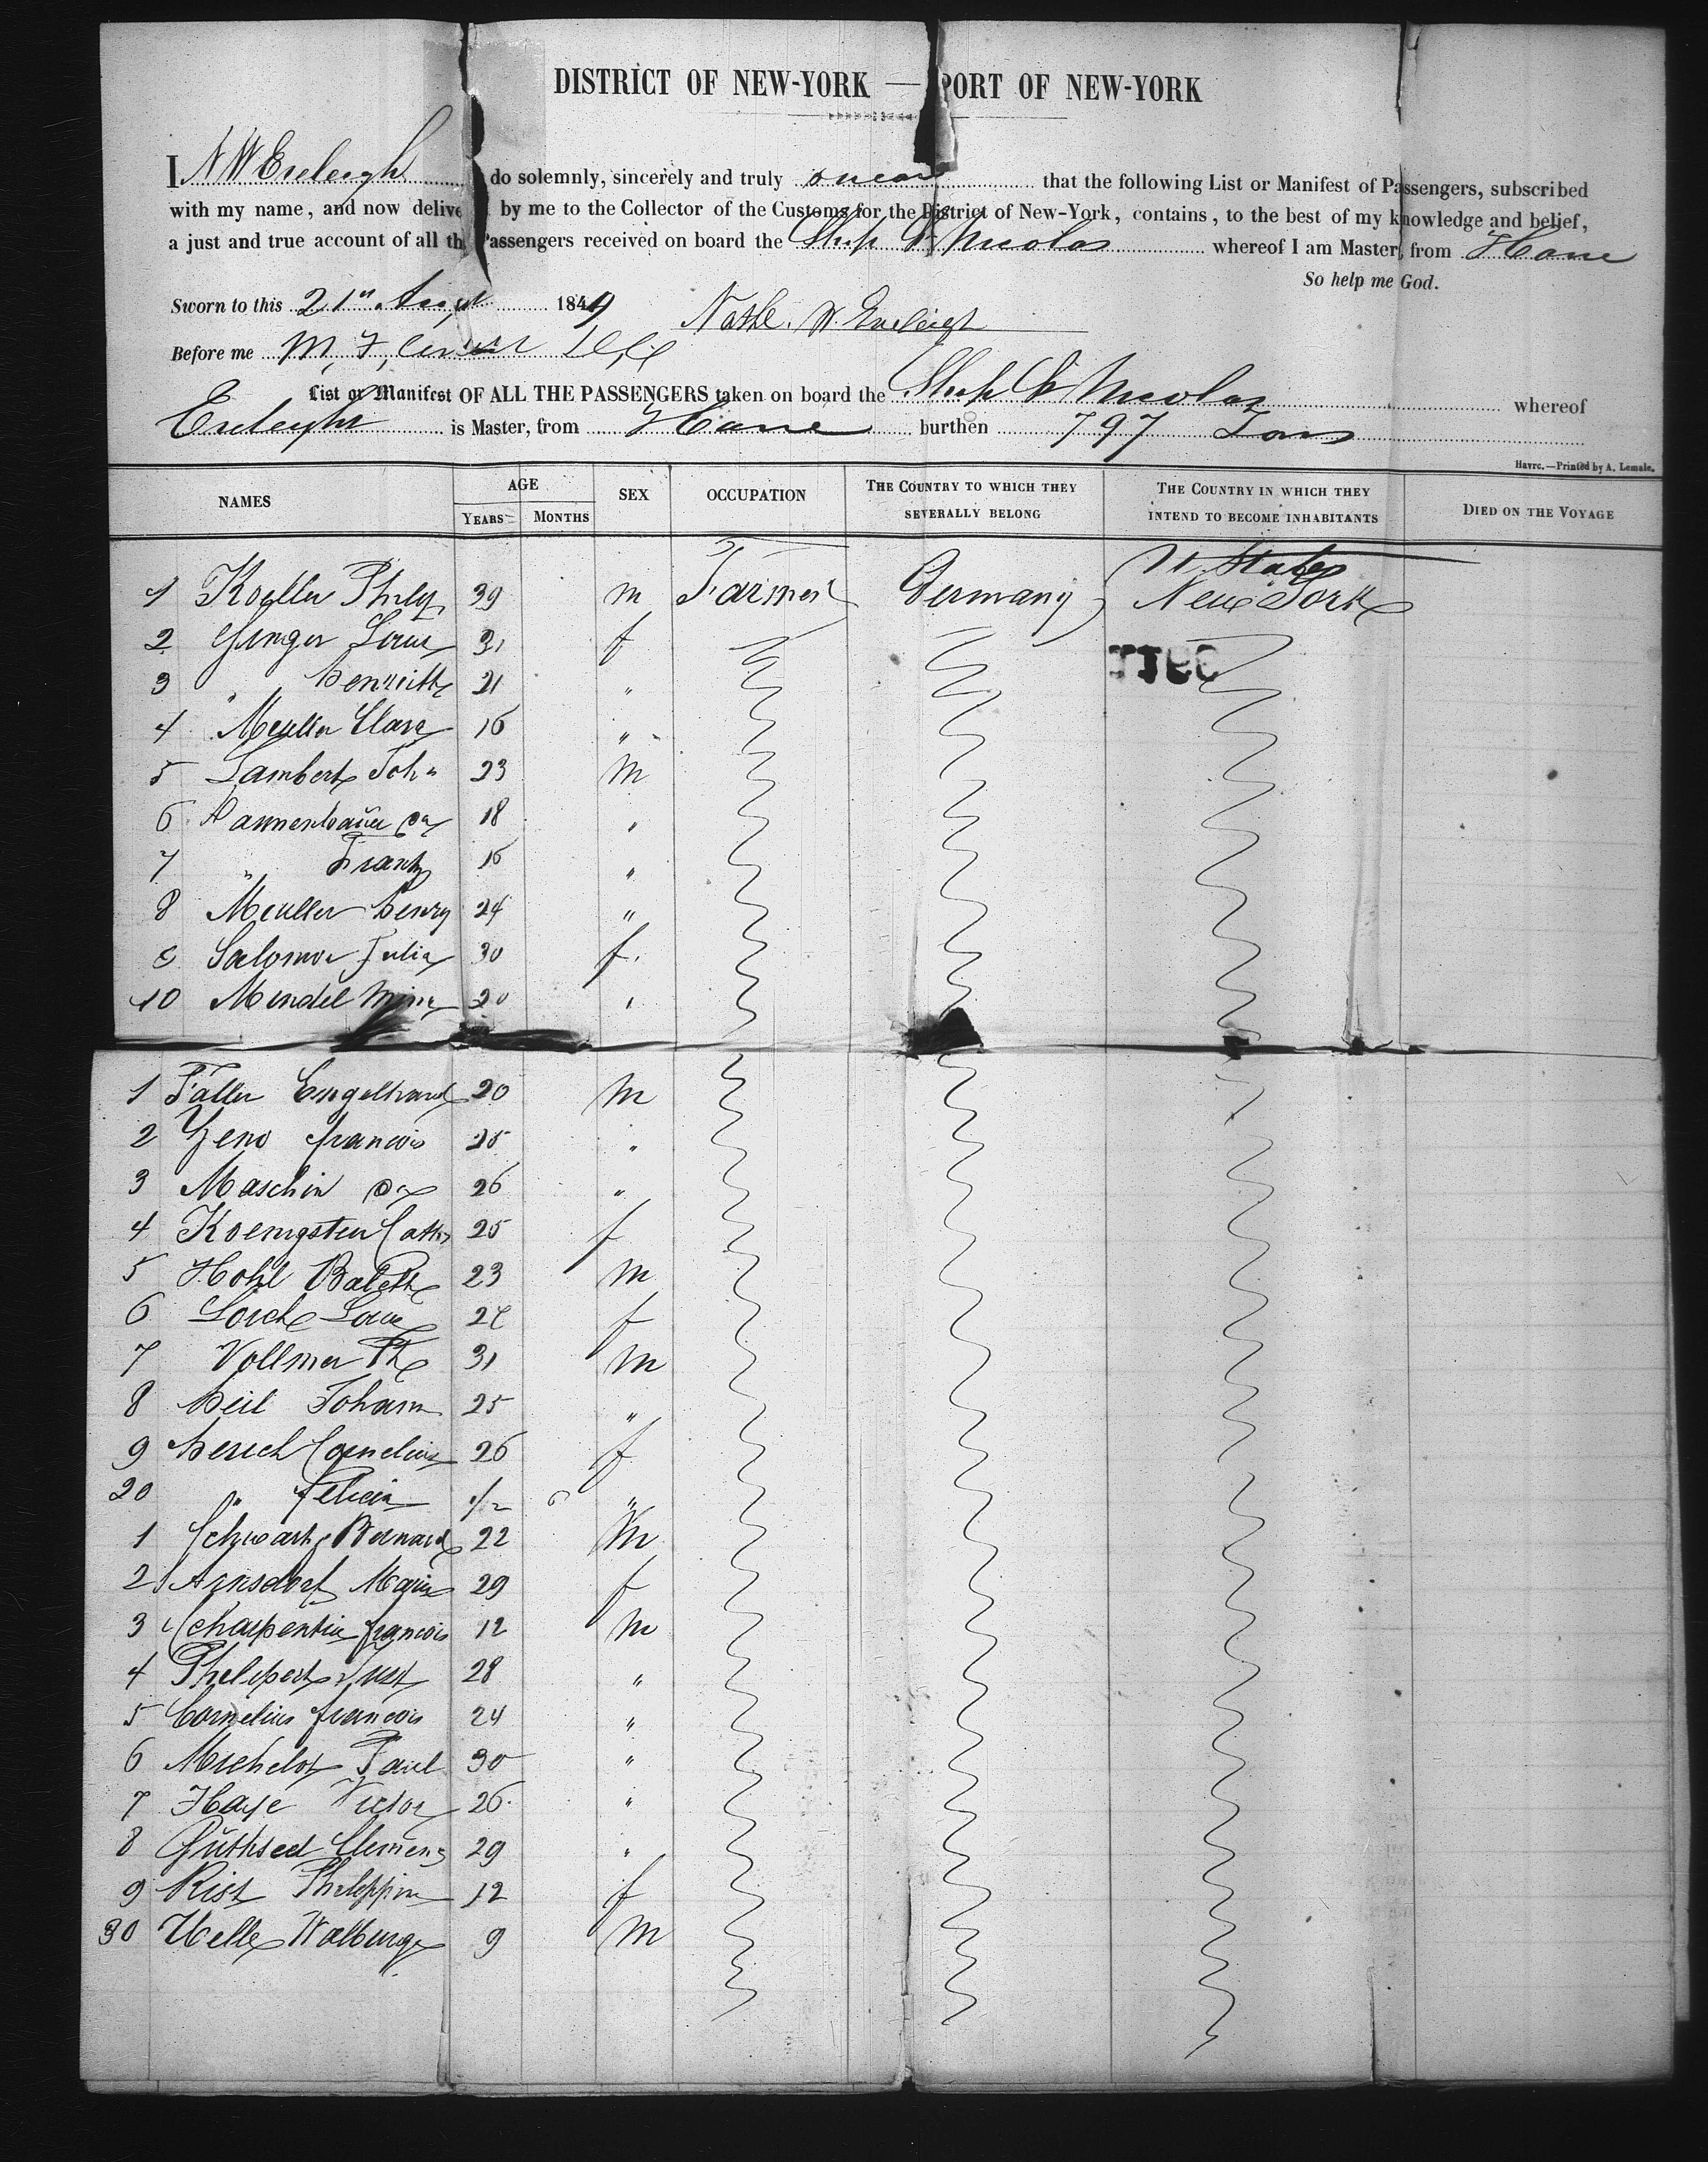 DISTRICT OF NEW-YORK — PORT OF NEW-YORK
I N W Eveleigh do solemnly, sincerely and truly swear that the following List or Manifest of Passengers, subscribed
with my name, and now delive by me to the Collector of the Customs for the District of New-York, contains, to the best of my knowledge and belief,
a just and true account of all the Passengers received on board the Ship St Nicolas whereof I am Master, from Havre
So help me God.
Sworn to this 21st Augt 1849 Nathl. W. Eveleigh
Before me M, F,
List or Manifest OF ALL THE PASSENGERS taken on board the Ship St Nicolas whereof
Eveleigh is Master, from Havre burthen 797 Tons
Havre.—Printed by A. Lemale.
NAMES AGE YEARS MONTHS SEX OCCUPATION THE COUNTRY TO WHICH THEY SEVERALLY BELONG THE COUNTRY IN WHICH THEY INTEND TO BECOME INHABITANTS DIED ON THE VOYAGE
U. States
1 Koeller Philip 39 m Farmer Germany New York
2 Ginger Louise 31 f
3 " henriette 21 "
4 Meuller Clara 16 "
5 Lambert John 23 m
6 18 "
7 " Frantz 16 "
8 Meuller henry 24 "
9 Salomon Julia 30 f.
10 Mendel Mina 20 "
1 Faller Engelhard 20 m
2 Zeno francois 25 "
3 Maschin 26 "
4 Koenigsten Cath 25 f
5 Hohl Babeth 23 m
6 Lorch Louise f
7 Vollmer Ph 31 m
8 heil Johann 25 "
9 herich Cornelius 26 f
20 " felicia 1/2 6 "
1 Schwartz Bernard 22 m
2 Arnsdorf Marie 29 f
3 Charpentier francois 12 m
4 Philipert Just 28 "
5 Cornelius francois 24 "
6 Michelot Paul 30 "
7 Haye Victor 26 "
8 Guthsed Clemens 29 "
9 Rist Philippine 12 f
30 Helle Walburge 9 m